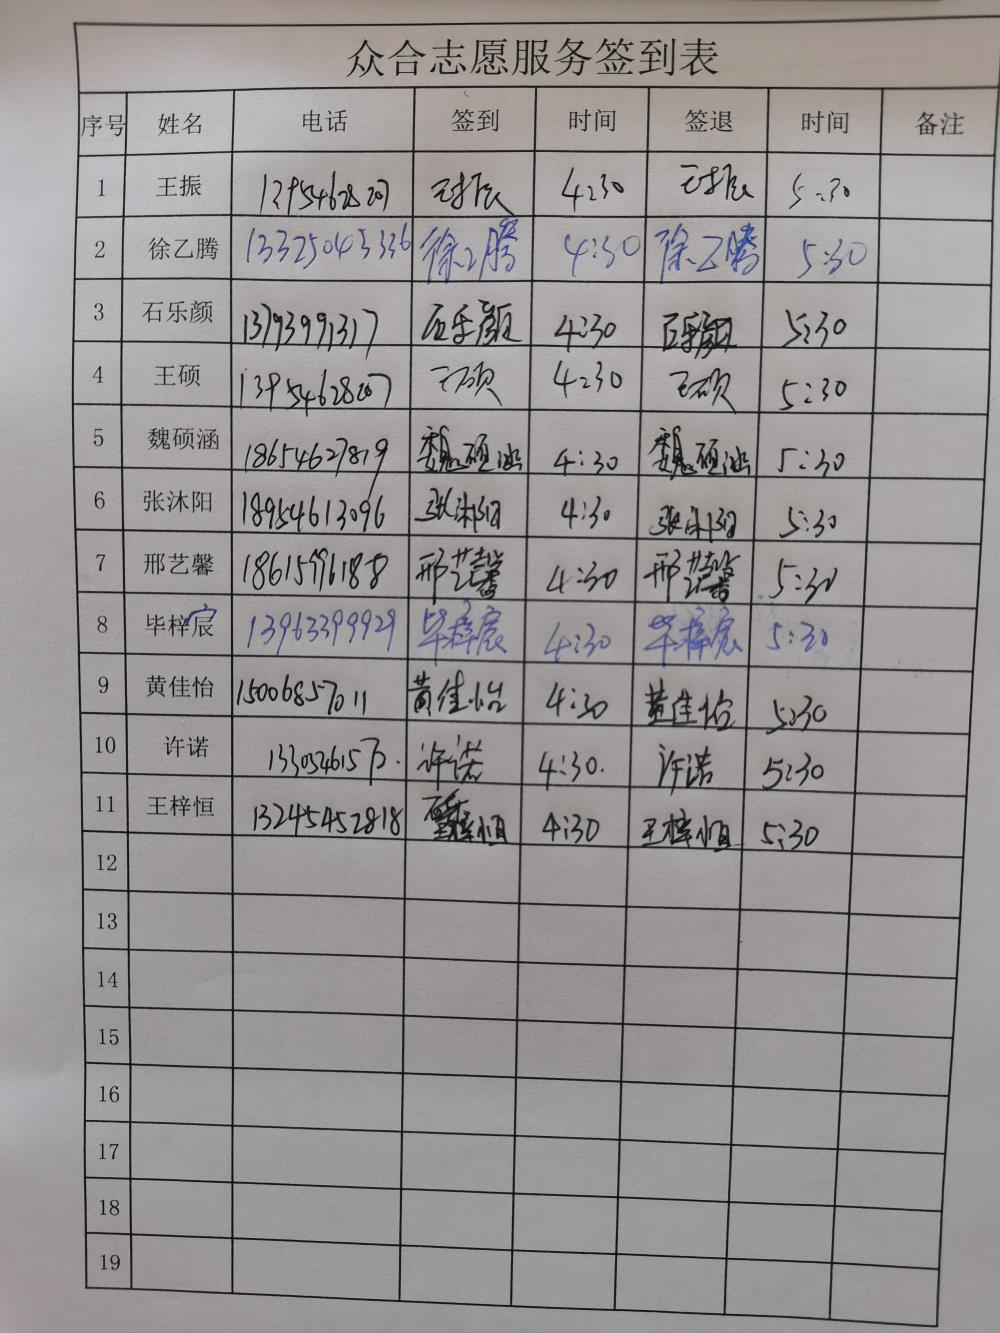 众合志愿服务签到表
序号 姓名 电话 签到 时间 签退 时间 备注
1 王振 13954628207 王振 4:30 王振 5:30
2 徐乙腾 13325043336 徐乙腾 4:30 徐乙腾 5:30
3 石乐颜 13793991317 石乐颜 4:30 石乐颜 5:30
4 王硕 13954628207 王硕 4:30 王硕 5:30
5 魏硕涵 18654627819 魏硕涵 4:30 魏硕涵 5:30
6 张沐阳 18954613096 张沐阳 4:30 张沐阳 5:30
7 邢艺馨 18615996188 邢艺馨 4:30 邢艺馨 5:30
8 毕梓宸 13963399929 毕梓宸 4:30 毕梓宸 5:30
9 黄佳怡 15006857011 黄佳怡 4:30 黄佳怡 5:30
10 许诺 许诺 4:30. 许诺 5:30
11 王梓恒 13245452818 王梓恒 4:30 王梓恒 5:30
12
13
14
15
16
17
18
19